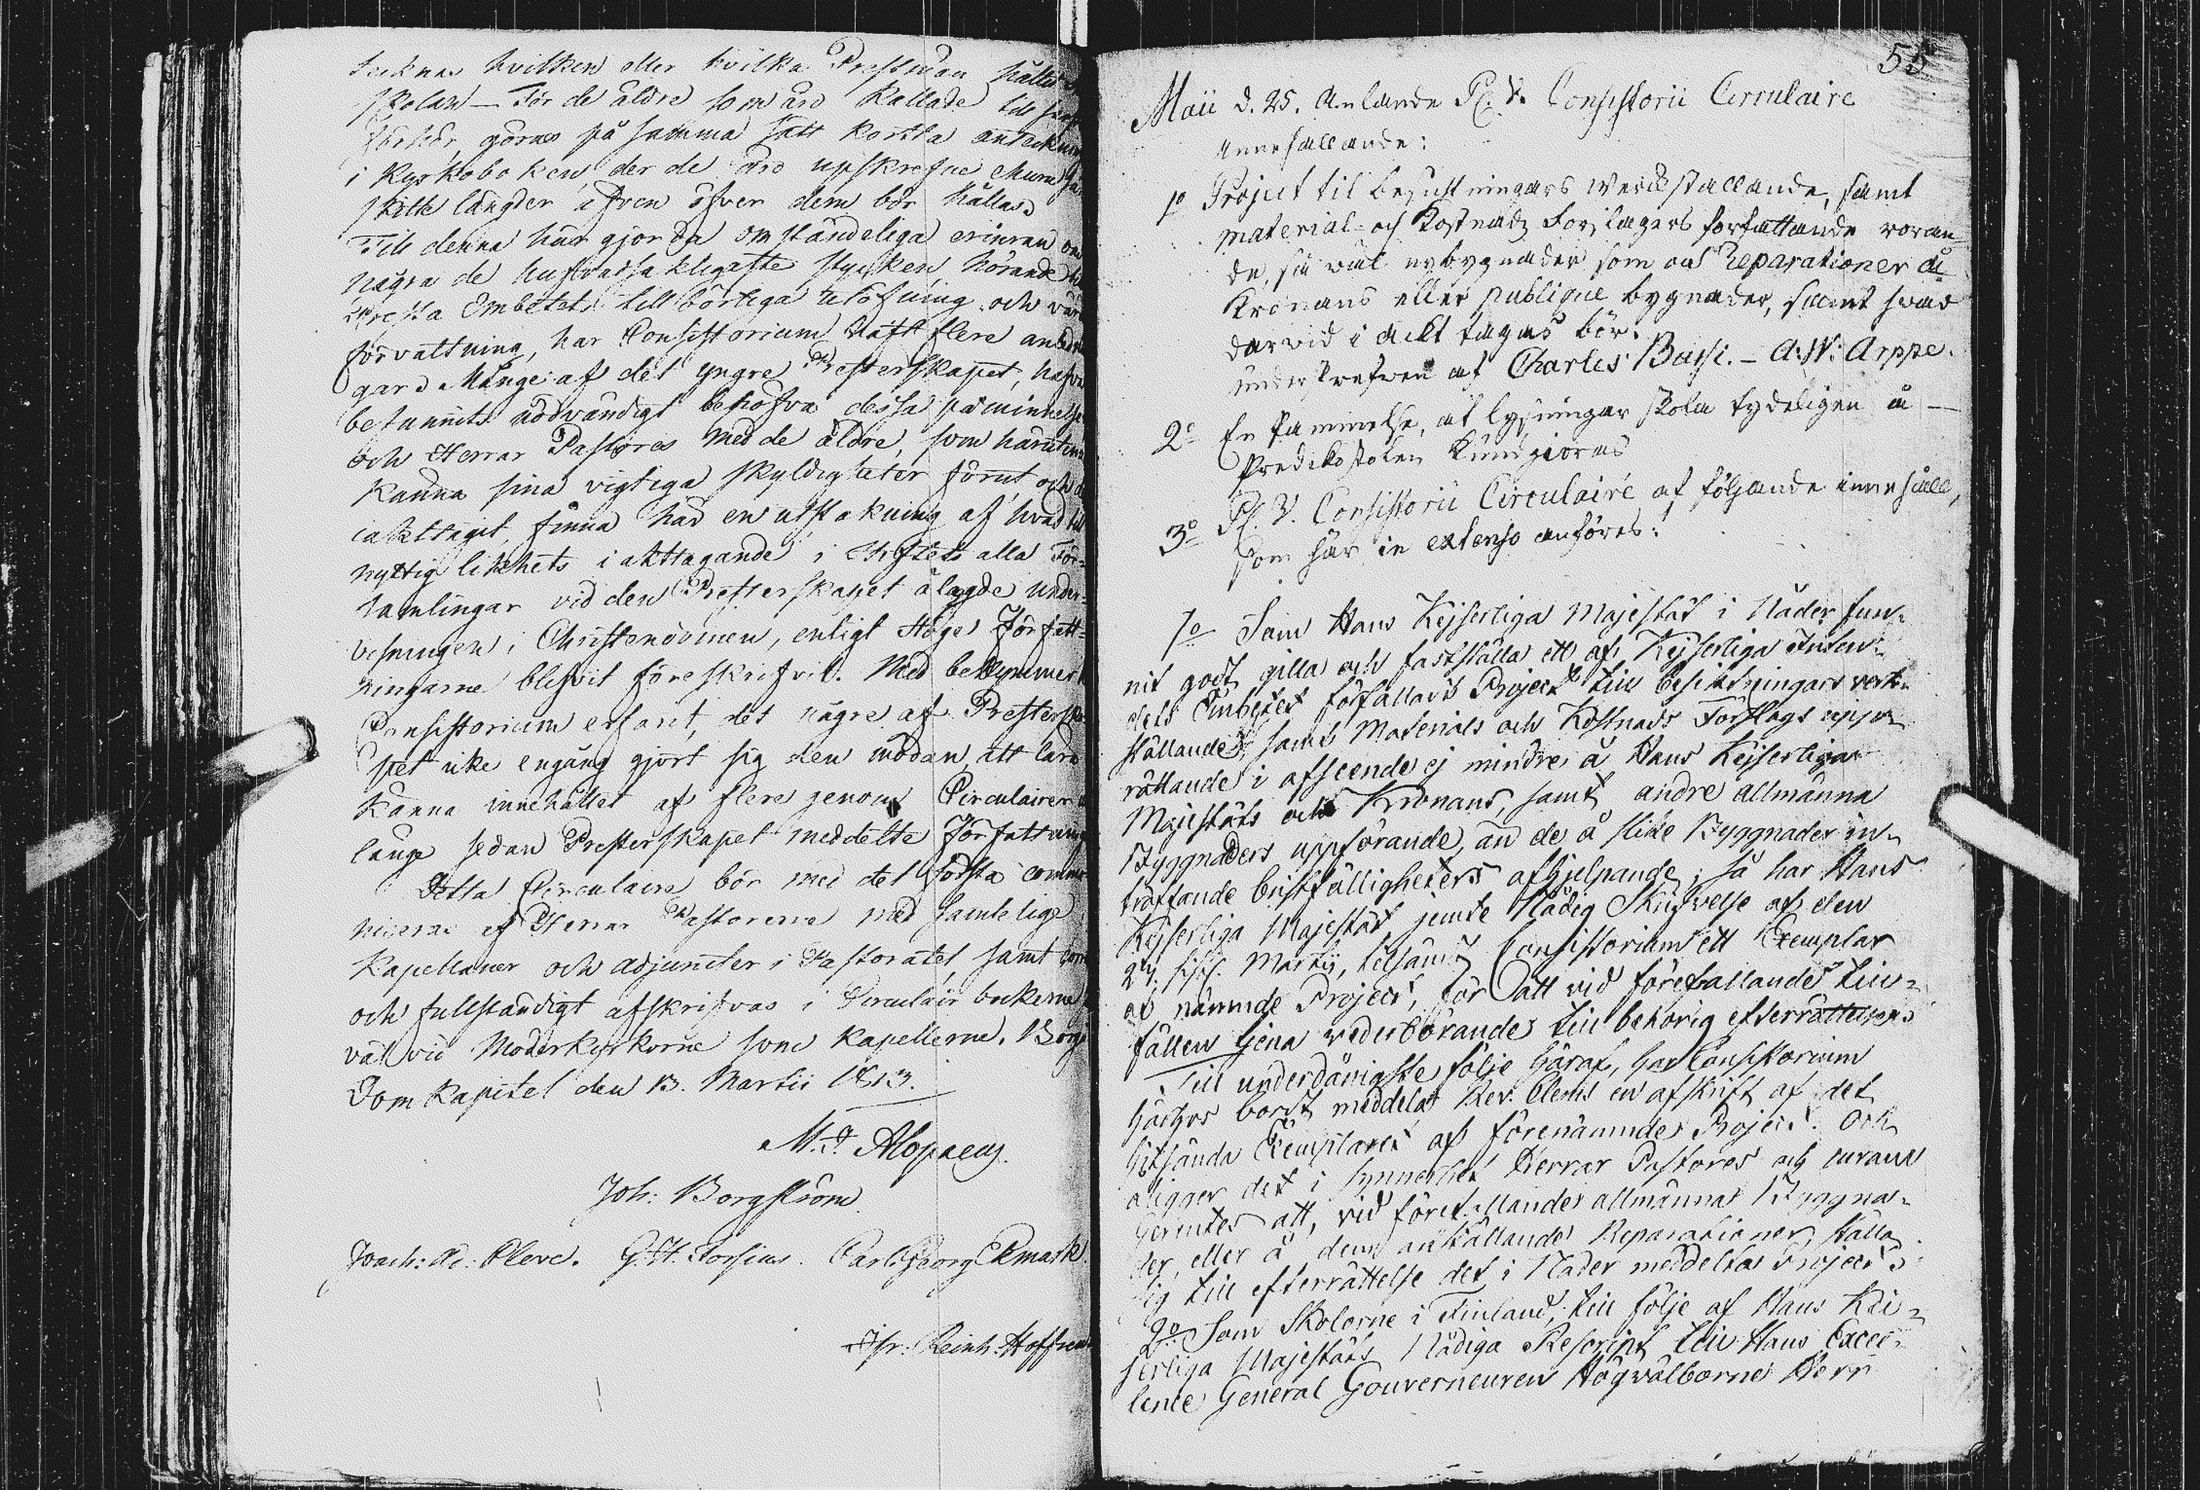 tecknas hvilken eller hvilka Prestman hållit
skolan — För de äldre som äro kallade till
förhör, göras på samma sätt korrta anteckn
i kyrkoboken der de äro upskrefne
skilte längder äfven öfver dem bör hållas.
Till denna här gjorda omständeliga erinran om
några de hufvudsakligaste stycken hörande till
Presta Embetets tillbörliga utöfning och
förvaltning, har Consistorium haft flere
Många af det yngre Presterskapet, hafva
bekannits nödvändigt behöfva dessa påminnelser
och Herrar Pastores med de äldre, som
känna sina vigtiga skyldigheter förut och
iakttagit, finna här en utstakning af hvad till
nyttig likhets iakttagande i Stiftets alla För-
samlingar vid den Presterskapet ålagde under-
visningen i Christendomen, enligt Höga Författ-
ningarne blifvit föreskrifvit. Med bekymmer
Consistorium erfarit, det någre af Prestersk
pet icke engång gjort sig den mödan, att lära
känna innehållet af flere genom Circulairer
länge sedan Presterskapet meddelte Författning
Detta Circulaire bör med det första commu
niceras af Herrar Pastorerne med samtelige
Kapellaner och adjuncter i Pastoratet, samt
och fullständigt afskrifvas i Circulair bökerne
väl vid Moderkyrkorne som kapellerne. Borgå
Domkapitel den 13. Martii 1813.
M. J. Alopaeus.
Joh: Borgström.
Joach: Ad: Cleve. G. H. Forsius. Carl Georg Ekmark.
Isr: Reinh: Hoffren
55
Maii d. 25. Anlände P. V. Consistorii Circulaire
innehållande:
1o Project til besigtningars werckställande, samt
material- och Kostnads Förslagers författande röran-
de, så wäl nybygnader som ock Reparationer å
Kronans eller publique bygnader, samt hwad
därvid i ackt tagas bör.
underskrefven af Charles Bassi. — A: W: Arppe.
2o En påminnelse, at lysningar skola tydeligen å —
Predikostolen kungjöras
3o P. V. Consistorii Circulaire af följande innehåll,
som här in extenso anföres:
1o Som Hans Kejserliga Majestät i Nåder fun-
nit godt gilla och fastställa ett af Kejserliga Inten-
dets Embetet författadt Project till besiktningars verk-
ställande, samt Materials och Kostnads Förslags upp-
rättande i afseende ej mindre å Hans Kejserliga
Majestäts och Kronans, samt andre allmänna
Byggnaders uppförande, än de å slike Byggnader in-
träffande bristfälligheters afhjelpande; så har Hans
Kejserliga Majestät jemte Nådig Skrifvelse af den
sistl. Martii, tilsändt Consistorium ett Exemplar
af nämnde Project, för att vid förefallande till-
fällen tjena vederbörande till behörig efterrättelse.
Till underdånigste följe häraf, har Consistorium
härhos bordt meddela Rev. Clerus en afskrift af det
hitsända Exemplaret af förenämnde Project. Och
åligger det i synnerhet Herrar Pastores och curam
Gerentes att, vid förefallande allmänna Byggna-
der, eller å dem anställande Reparationer, hålla
sig till efterrättelse det i Nåder meddelta Project.
2o Som Skolorne i Finland, till följe af Hans Kei-
serliga Majestäts Nådiga Rescript till Hans Excel-
lence General Gouverneuren Högvälborne Herr